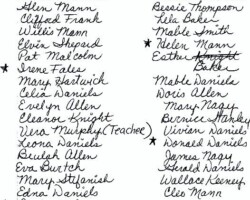 Glen Mann
Clifford Frank
Willis Mann
Elvin Shepard
Pat Malcolm
* Irene Fales
Mary Hartwick
Celia Daniels
Evelyn Allen
Eleanor Knight
Vera Murphy (Teacher)
Leona Daniels
Beulah Allen
Eva Burtch
Mary Stefanish
Edna Daniels
Bessie Thompson
Lela Baker
Mable Smith
* Helen Mann
Esther Knight
Baker
Mable Daniels
Doris Allen
Mary Nagy
Bernice Hanley
Vivian Daniels
* Donald Daniels
James Nagy
Gerald Daniels
Wallace Keeney
Cleo Mann